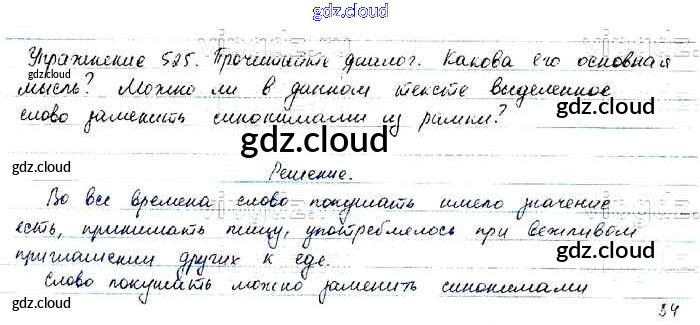 gdz.cloud
gdz.cloud
Упражнение 525. Прочитайте диалог. Какова его основная
gdz.cloud
мысль? Можно ли в данном тексте выделенное
слово заменить синонимами из рамки?
gdz.cloud
gdz.cloud
gdz.cloud
Решение.
Во все времена слово покушать имело значение
есть, принимать пищу, употреблялось при вежливом
приглашении других к еде.
gdz.cloud
Слово покушать можно заменить синонимами
gdz.cloud
gdz.cloud
34